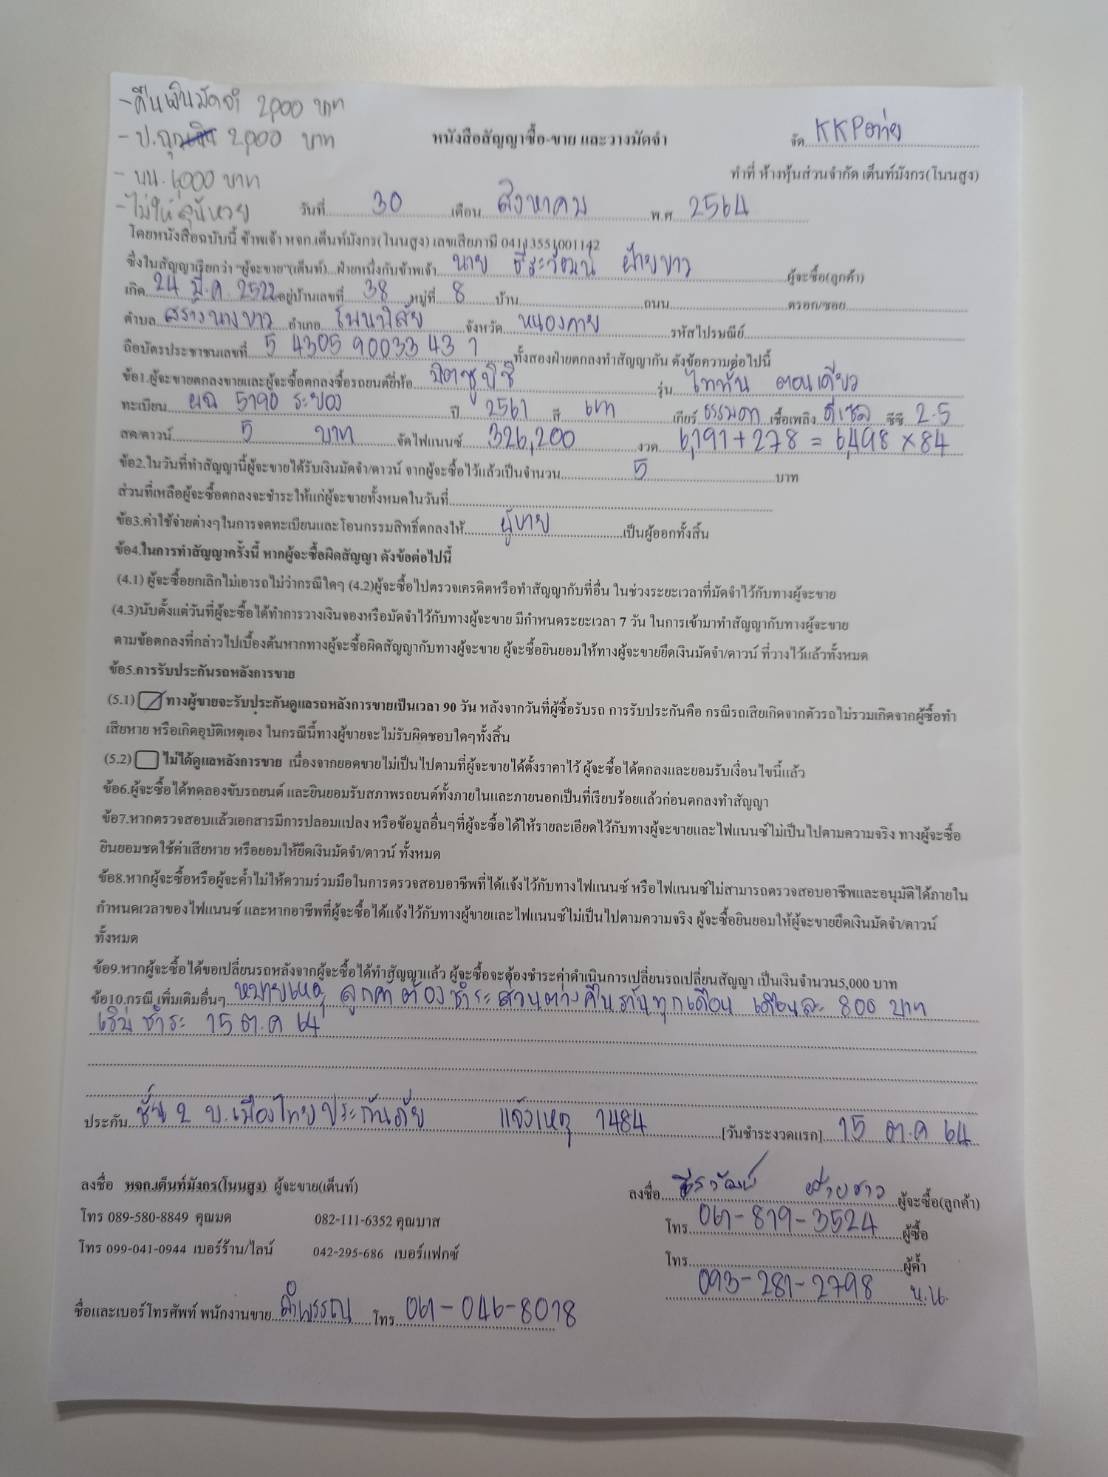 -คืนเงินมัดจำ 2,000 บาท
- 2,000 บาท
หนังสือสัญญาซื้อ-ขาย และวางมัดจำ
จัด KKP
- นน. 1,000 บาท
ทำที่ ห้างหุ้นส่วนจำกัด เต็นท์มังกร(โนนสูง)
-ไม่ให้
วันที่ 30 เดือน สิงหาคม พ.ศ. 2564
โดยหนังสือฉบับนี้ ข้าพเจ้า หจก.เต็นท์มังกร(โนนสูง) เลขเสียภาษี 04113551001142
ซึ่งในสัญญาเรียกว่า "ผู้จะขาย"(เต็นท์) ฝ่ายหนึ่งกับข้าพเจ้า นาย ธีระวัฒน์ ฝ่ายขาว ผู้จะซื้อ(ลูกค้า)
เกิด 24 มี.ค. 2522 อยู่บ้านเลขที่ 38 หมู่ที่ 8 บ้าน ถนน ตรอก/ซอย
ตำบล สร้างนางขาว อำเภอ โพนพิสัย จังหวัด หนองคาย รหัสไปรษณีย์
ถือบัตรประชาชนเลขที่ 5 4305 90033 43 7 ทั้งสองฝ่ายตกลงทำสัญญากัน ดังข้อความต่อไปนี้
ข้อ1.ผู้จะขายตกลงขายและผู้จะซื้อตกลงซื้อรถยนต์ยี่ห้อ มิตซูบิชิ รุ่น ไททัน ตอนเดียว
ทะเบียน ผฉ 5190 ระยอง ปี 2561 สี เทา เกียร์ ธรรมดา เชื้อเพลิง ดีเซล ซีซี 2.5
สด/ดาวน์ 5 บาท จัดไฟแนนซ์ 326,200 งวด 6,191+278 = 6,498 ×84
ข้อ2.ในวันที่ทำสัญญานี้ผู้จะขายได้รับเงินมัดจำ/ดาวน์ จากผู้จะซื้อไว้แล้วเป็นจำนวน 5 บาท
ส่วนที่เหลือผู้จะซื้อตกลงจะชำระให้แก่ผู้จะขายทั้งหมดในวันที่
ข้อ3.ค่าใช้จ่ายต่างๆในการจดทะเบียนและโอนกรรมสิทธิ์ตกลงให้ ผู้ขาย เป็นผู้ออกทั้งสิ้น
ข้อ4.ในการทำสัญญาครั้งนี้ หากผู้จะซื้อผิดสัญญา ดังข้อต่อไปนี้
(4.1) ผู้จะซื้อยกเลิกไม่เอารถไม่ว่ากรณีใดๆ (4.2)ผู้จะซื้อไปตรวจเครดิตหรือทำสัญญากับที่อื่น ในช่วงระยะเวลาที่มัดจำไว้กับทางผู้จะขาย
(4.3)นับตั้งแต่วันที่ผู้จะซื้อได้ทำการวางเงินจองหรือมัดจำไว้กับทางผู้จะขาย มีกำหนดระยะเวลา 7 วัน ในการเข้ามาทำสัญญากับทางผู้จะขาย
ตามข้อตกลงที่กล่าวไปเบื้องต้นหากทางผู้จะซื้อผิดสัญญากับทางผู้จะขาย ผู้จะซื้อยินยอมให้ทางผู้จะขายยึดเงินมัดจำ/ดาวน์ ที่วางไว้แล้วทั้งหมด
ข้อ5.การรับประกันรถหลังการขาย
(5.1) ทางผู้ขายจะรับประกันดูแลรถหลังการขายเป็นเวลา 90 วัน หลังจากวันที่ผู้ซื้อรับรถ การรับประกันคือ กรณีรถเสียเกิดจากตัวรถไม่รวมเกิดจากผู้ซื้อทำ
เสียหาย หรือเกิดอุบัติเหตุเอง ในกรณีนี้ทางผู้ขายจะไม่รับผิดชอบใดๆทั้งสิ้น
(5.2) ไม่ได้ดูแลหลังการขาย เนื่องจากยอดขายไม่เป็นไปตามที่ผู้จะขายได้ตั้งราคาไว้ ผู้จะซื้อได้ตกลงและยอมรับเงื่อนไขนี้แล้ว
ข้อ6.ผู้จะซื้อได้ทดลองขับรถยนต์ และยินยอมรับสภาพรถยนต์ทั้งภายในและภายนอกเป็นที่เรียบร้อยแล้วก่อนตกลงทำสัญญา
ข้อ7.หากตรวจสอบแล้วเอกสารมีการปลอมแปลง หรือข้อมูลอื่นๆที่ผู้จะซื้อได้ให้รายละเอียดไว้กับทางผู้จะขายและไฟแนนซ์ไม่เป็นไปตามความจริง ทางผู้จะซื้อ
ยินยอมชดใช้ค่าเสียหาย หรือยอมให้ยึดเงินมัดจำ/ดาวน์ ทั้งหมด
ข้อ8.หากผู้จะซื้อหรือผู้จะค้ำไม่ให้ความร่วมมือในการตรวจสอบอาชีพที่ได้แจ้งไว้กับทางไฟแนนซ์ หรือไฟแนนซ์ไม่สามารถตรวจสอบอาชีพและอนุมัติได้ภายใน
กำหนดเวลาของไฟแนนซ์ และหากอาชีพที่ผู้จะซื้อได้แจ้งไว้กับทางผู้ขายและไฟแนนซ์ไม่เป็นไปตามความจริง ผู้จะซื้อยินยอมให้ผู้จะขายยึดเงินมัดจำ/ดาวน์
ทั้งหมด
ข้อ9.หากผู้จะซื้อได้ขอเปลี่ยนรถหลังจากผู้จะซื้อได้ทำสัญญาแล้ว ผู้จะซื้อจะต้องชำระค่าดำเนินการเปลี่ยนรถเปลี่ยนสัญญา เป็นเงินจำนวน5,000 บาท
ข้อ10.กรณี เพิ่มเติมอื่นๆ หมายเหตุ ลูกค้าต้องชำระส่วนต่างคืนร้านทุกเดือน เดือนละ 800 บาท
เริ่มชำระ 15 ต.ค 64
ประกัน ชั้น 2 บ.เมืองไทยประกันภัย แจ้งเหตุ 1484 [วันชำระงวดแรก] 15 ต.ค 64
ลงชื่อ หจก.เต็นท์มังกร(โนนสูง) ผู้จะขาย(เต็นท์)
ลงชื่อ ธีรวัฒน์ ฝ่ายขาว ผู้จะซื้อ(ลูกค้า)
โทร 089-580-8849 คุณมด 082-111-6352 คุณบาส
โทร 061-819-3524 ผู้ซื้อ
โทร 099-041-0944 เบอร์ร้าน/ไลน์ 042-295-686 เบอร์แฟกซ์
โทร ผู้ค้ำ
093-281-2798 น.น.
ชื่อและเบอร์โทรศัพท์ พนักงานขาย ลำพรรณ โทร 061-046-8078